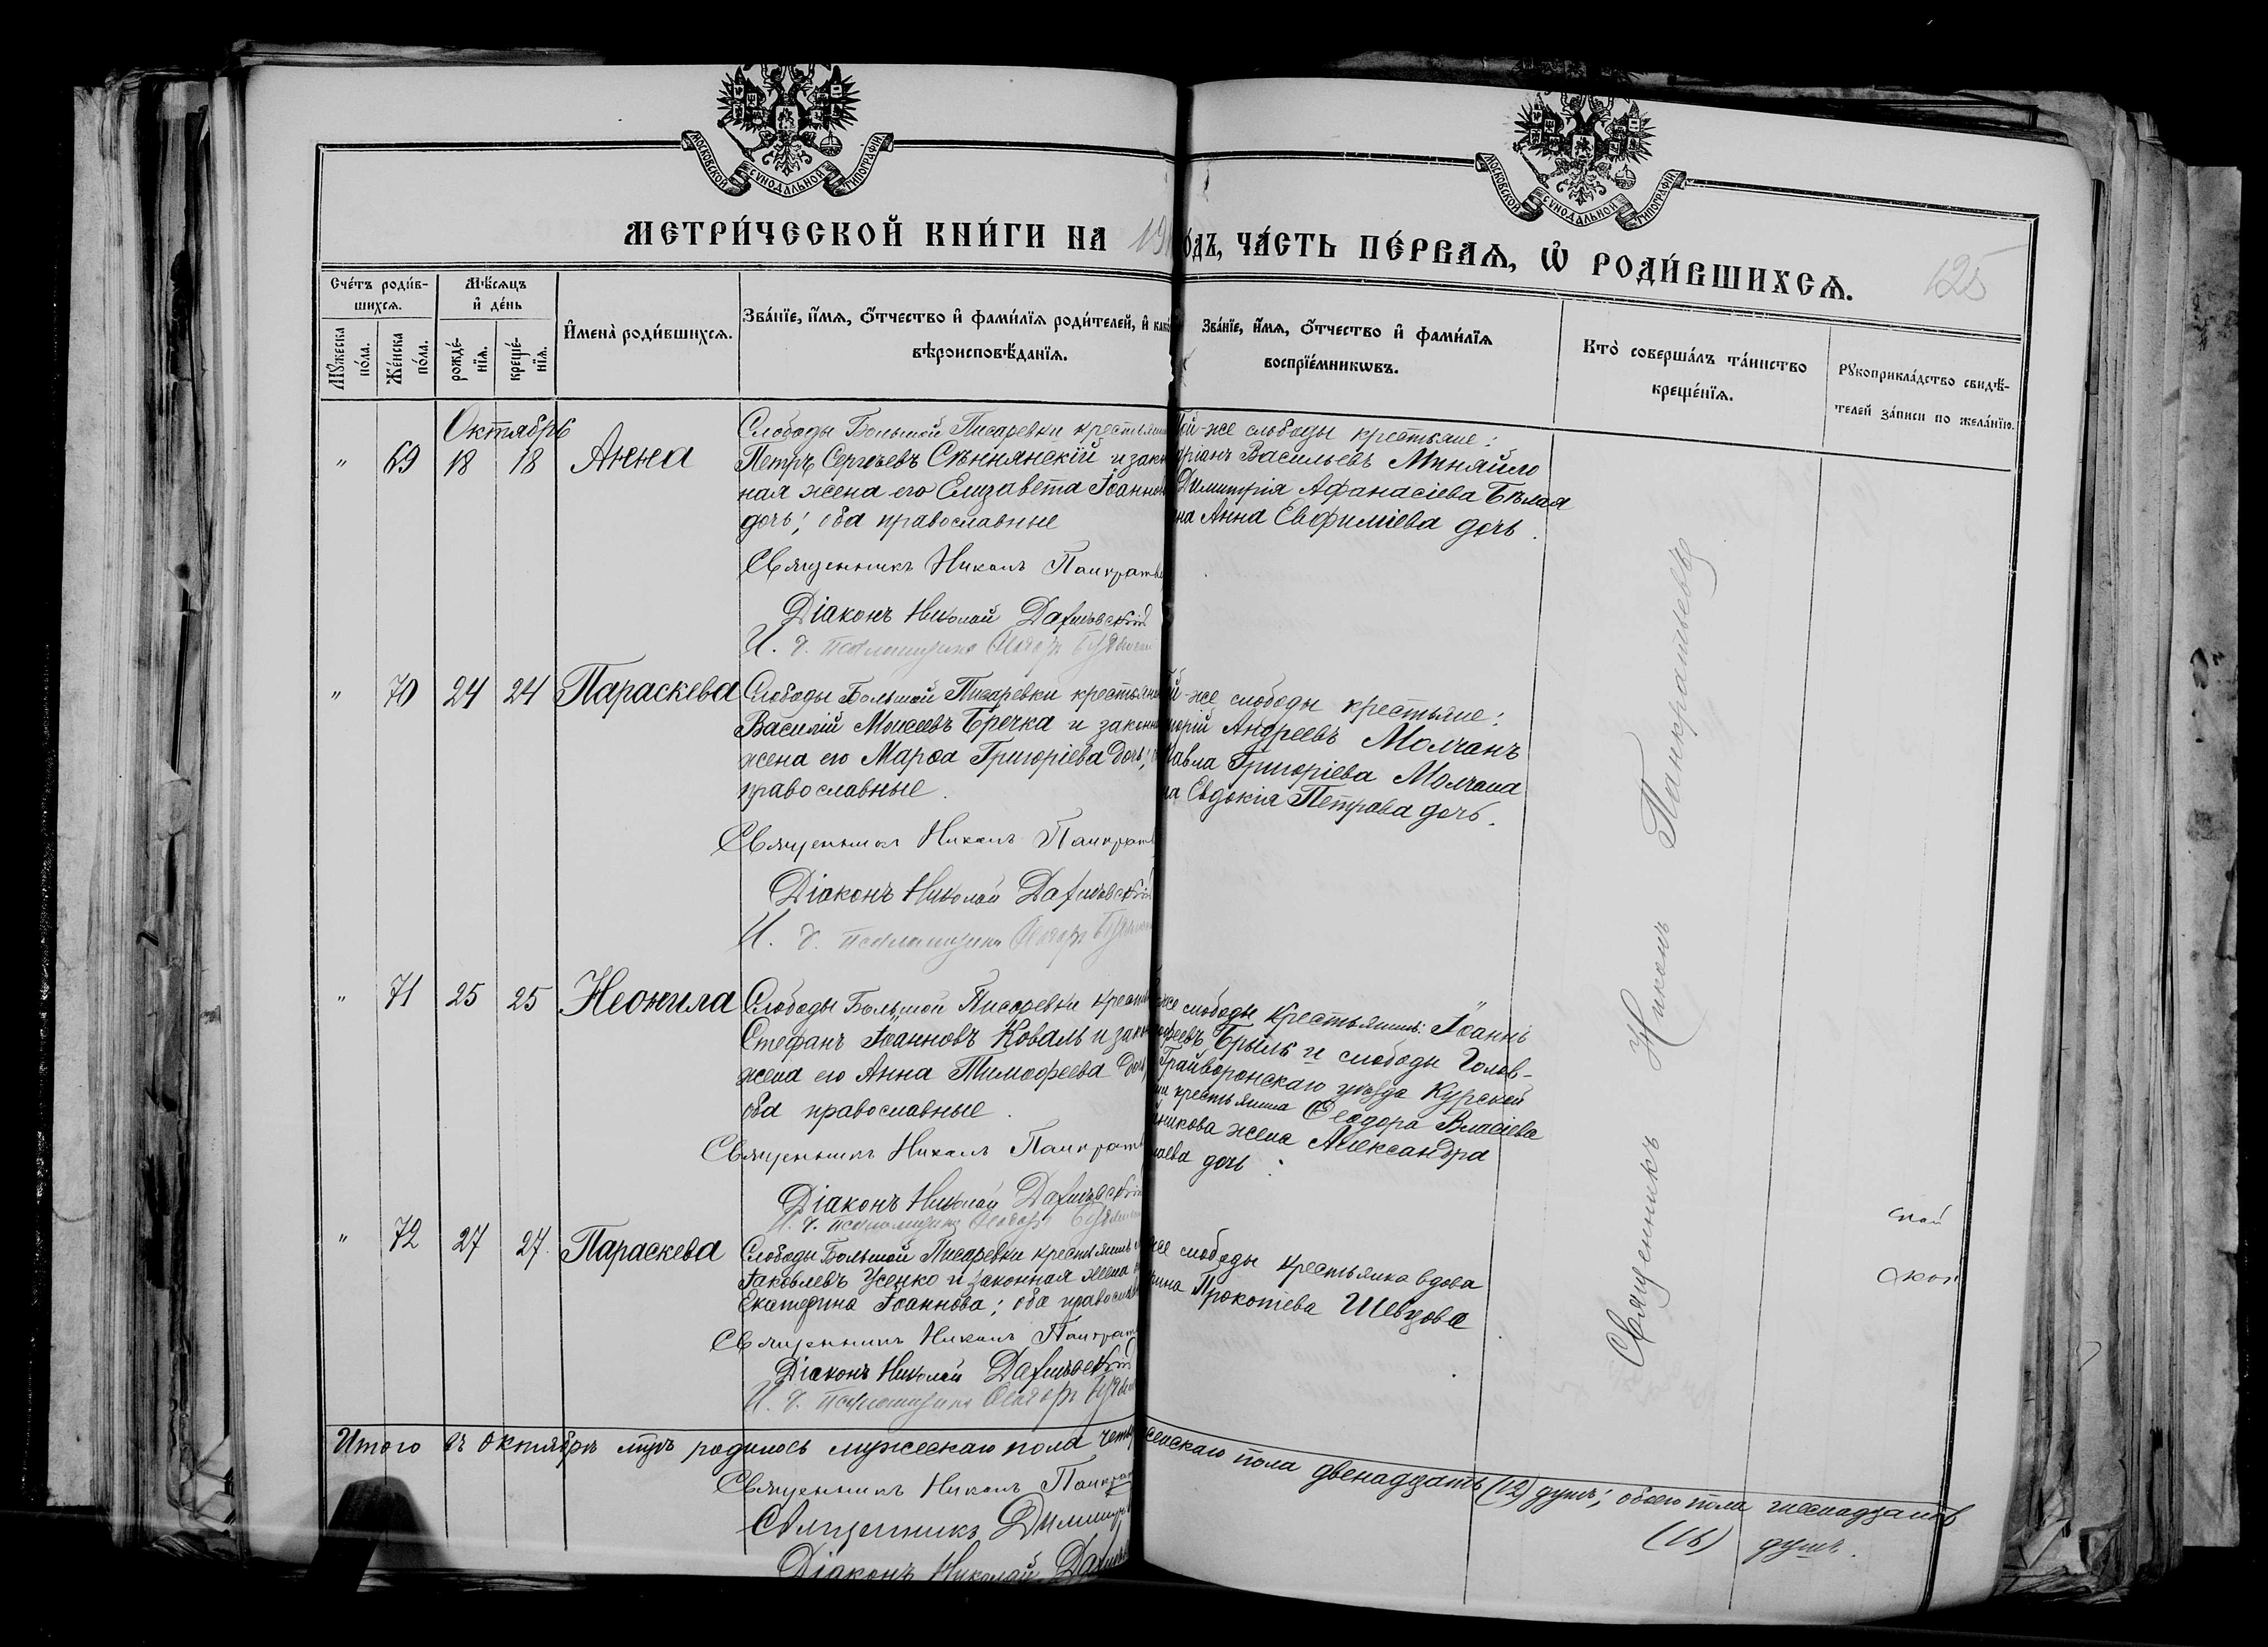 МОСКОВСКОЙ СУНОДАЛЬНОЙ ТИПОГРАФІИ
МОСКОВСКОЙ СУНОДАЛЬНОЙ ТИПОГРАФІИ
МЕТРИ́ЧЕСКОЙ КНИ́ГИ НА 19
ОДЪ, ЧА́СТЬ ПЕ́РВАѦ, Ѡ РОДИ́ВШИХСѦ.
125
Сче́тъ роди́в-
шихсѧ.
Мꙋжеска по́ла.
Же́нска по́ла.
Мѣ́сѧцъ
и҆ де́нь
рожде́-
нїѧ.
креще́-
нїѧ.
И҆мена̀ роди́вшихсѧ.
Зва́нїе, и҆́мѧ, ѻ҆́тчество и҆ фами́лїѧ роди́телей, и҆ как
вѣроисповѣ́данїѧ.
Зва́нїе, и҆́мѧ, ѻ҆́тчество и҆ фами́лїѧ
воспрїе́мникѡвъ.
Кто̀ соверша́лъ та́инство
креще́нїѧ.
Рꙋкоприкла́дство свидѣ́-
телей за́писи по жела́нїю.
Октябрь
" 69 18 18 Анна
Слободы Большой Писаревки крестьянин
Петръ Сергѣевъ Сѣннянскій и закон
ная жена его Елизавета Іоаннов
дочь; оба православные
Священникъ Никонъ Панкратьев
Діаконъ Николай
И. д. псаломщика Ѳеодоръ
той-же слободы крестьяне:
дріанъ Васильевъ Миняйло
Димитрія Афанасіева Бѣлая
на Анна Евфиміева дочь.
" 70 24 24 Параскева
Слободы Большой Писаревки крестьянин
Василій Моисеевъ Гречка и законн
жена его Марѳа Григоріева дочь;
православные.
Священникъ Никонъ Панкрат
Діаконъ Николай
И. д. псаломщика Ѳеодоръ
й-же слободы крестьяне:
горій Андреевъ Молчанъ
Павла Григоріева Молчана
на Евдокія Петрова дочь.
" 71 25 25 Неонила
Слободы Большой Писаревки крестья
Стефанъ Іоанновъ Коваль и зако
жена его Анна Тимоѳеева доч
оба православные.
Священникъ Никонъ Панкрат
Діаконъ Николай
И. д. псаломщика Ѳеодоръ
же слободы крестьянинъ: Іоаннъ
ѳеевъ Брыль и слободы Голов-
Грайворонскаго уѣзда Курской
ніи крестьянина Ѳеодора Власіева
никова жена Александра
лаева дочь.
" 72 27 27 Параскева
Слободы Большой Писаревки крестьянинъ
Іаковлевъ Усенко и законная жена
Екатерина Іоаннова; оба православ
Священникъ Никонъ Панкрат
Діаконъ Николай
И. д. псаломщика Ѳеодоръ
же слободы крестьянка вдова
рина Прокопіева Шевцова
Священникъ Никонъ Панкратьевъ
Итого въ октябрѣ мцѣ родилось мужескаго пола четы
женскаго пола двенадцать (12) душъ; обоего пола шеснадцать
(16) душъ.
Священникъ Никонъ Панкра
Священникъ Димитр
Діаконъ Николай